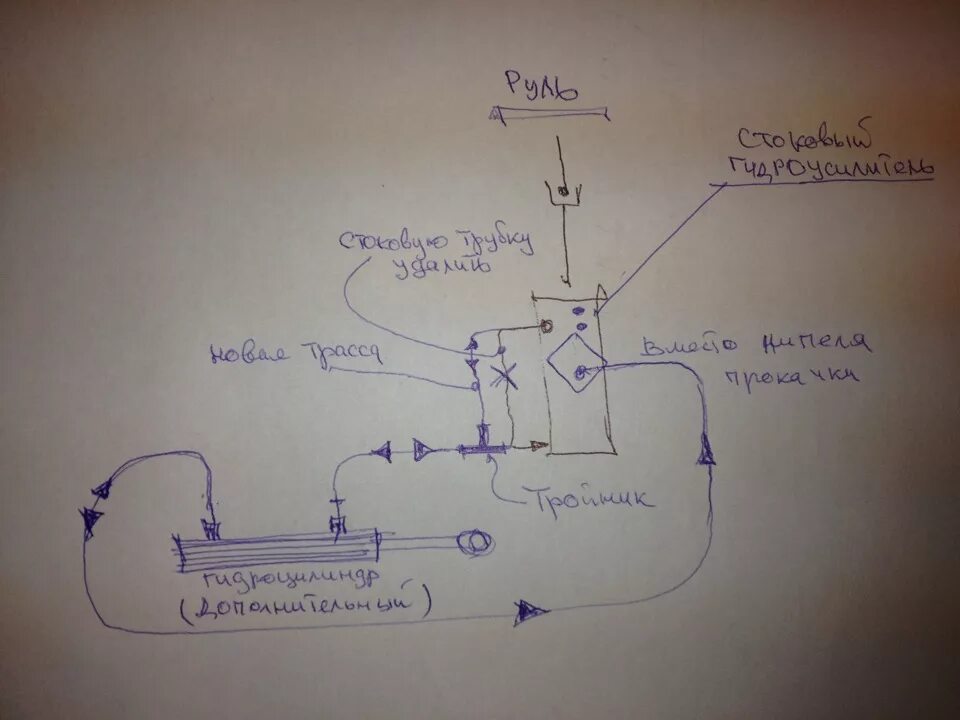 Руль
Стоковый
гидроусилитель
Стоковую трубку
удалить
Новая трасса
Вместо нипеля
прокачки
Тройник
гидроцилиндр
(Дополнительный)